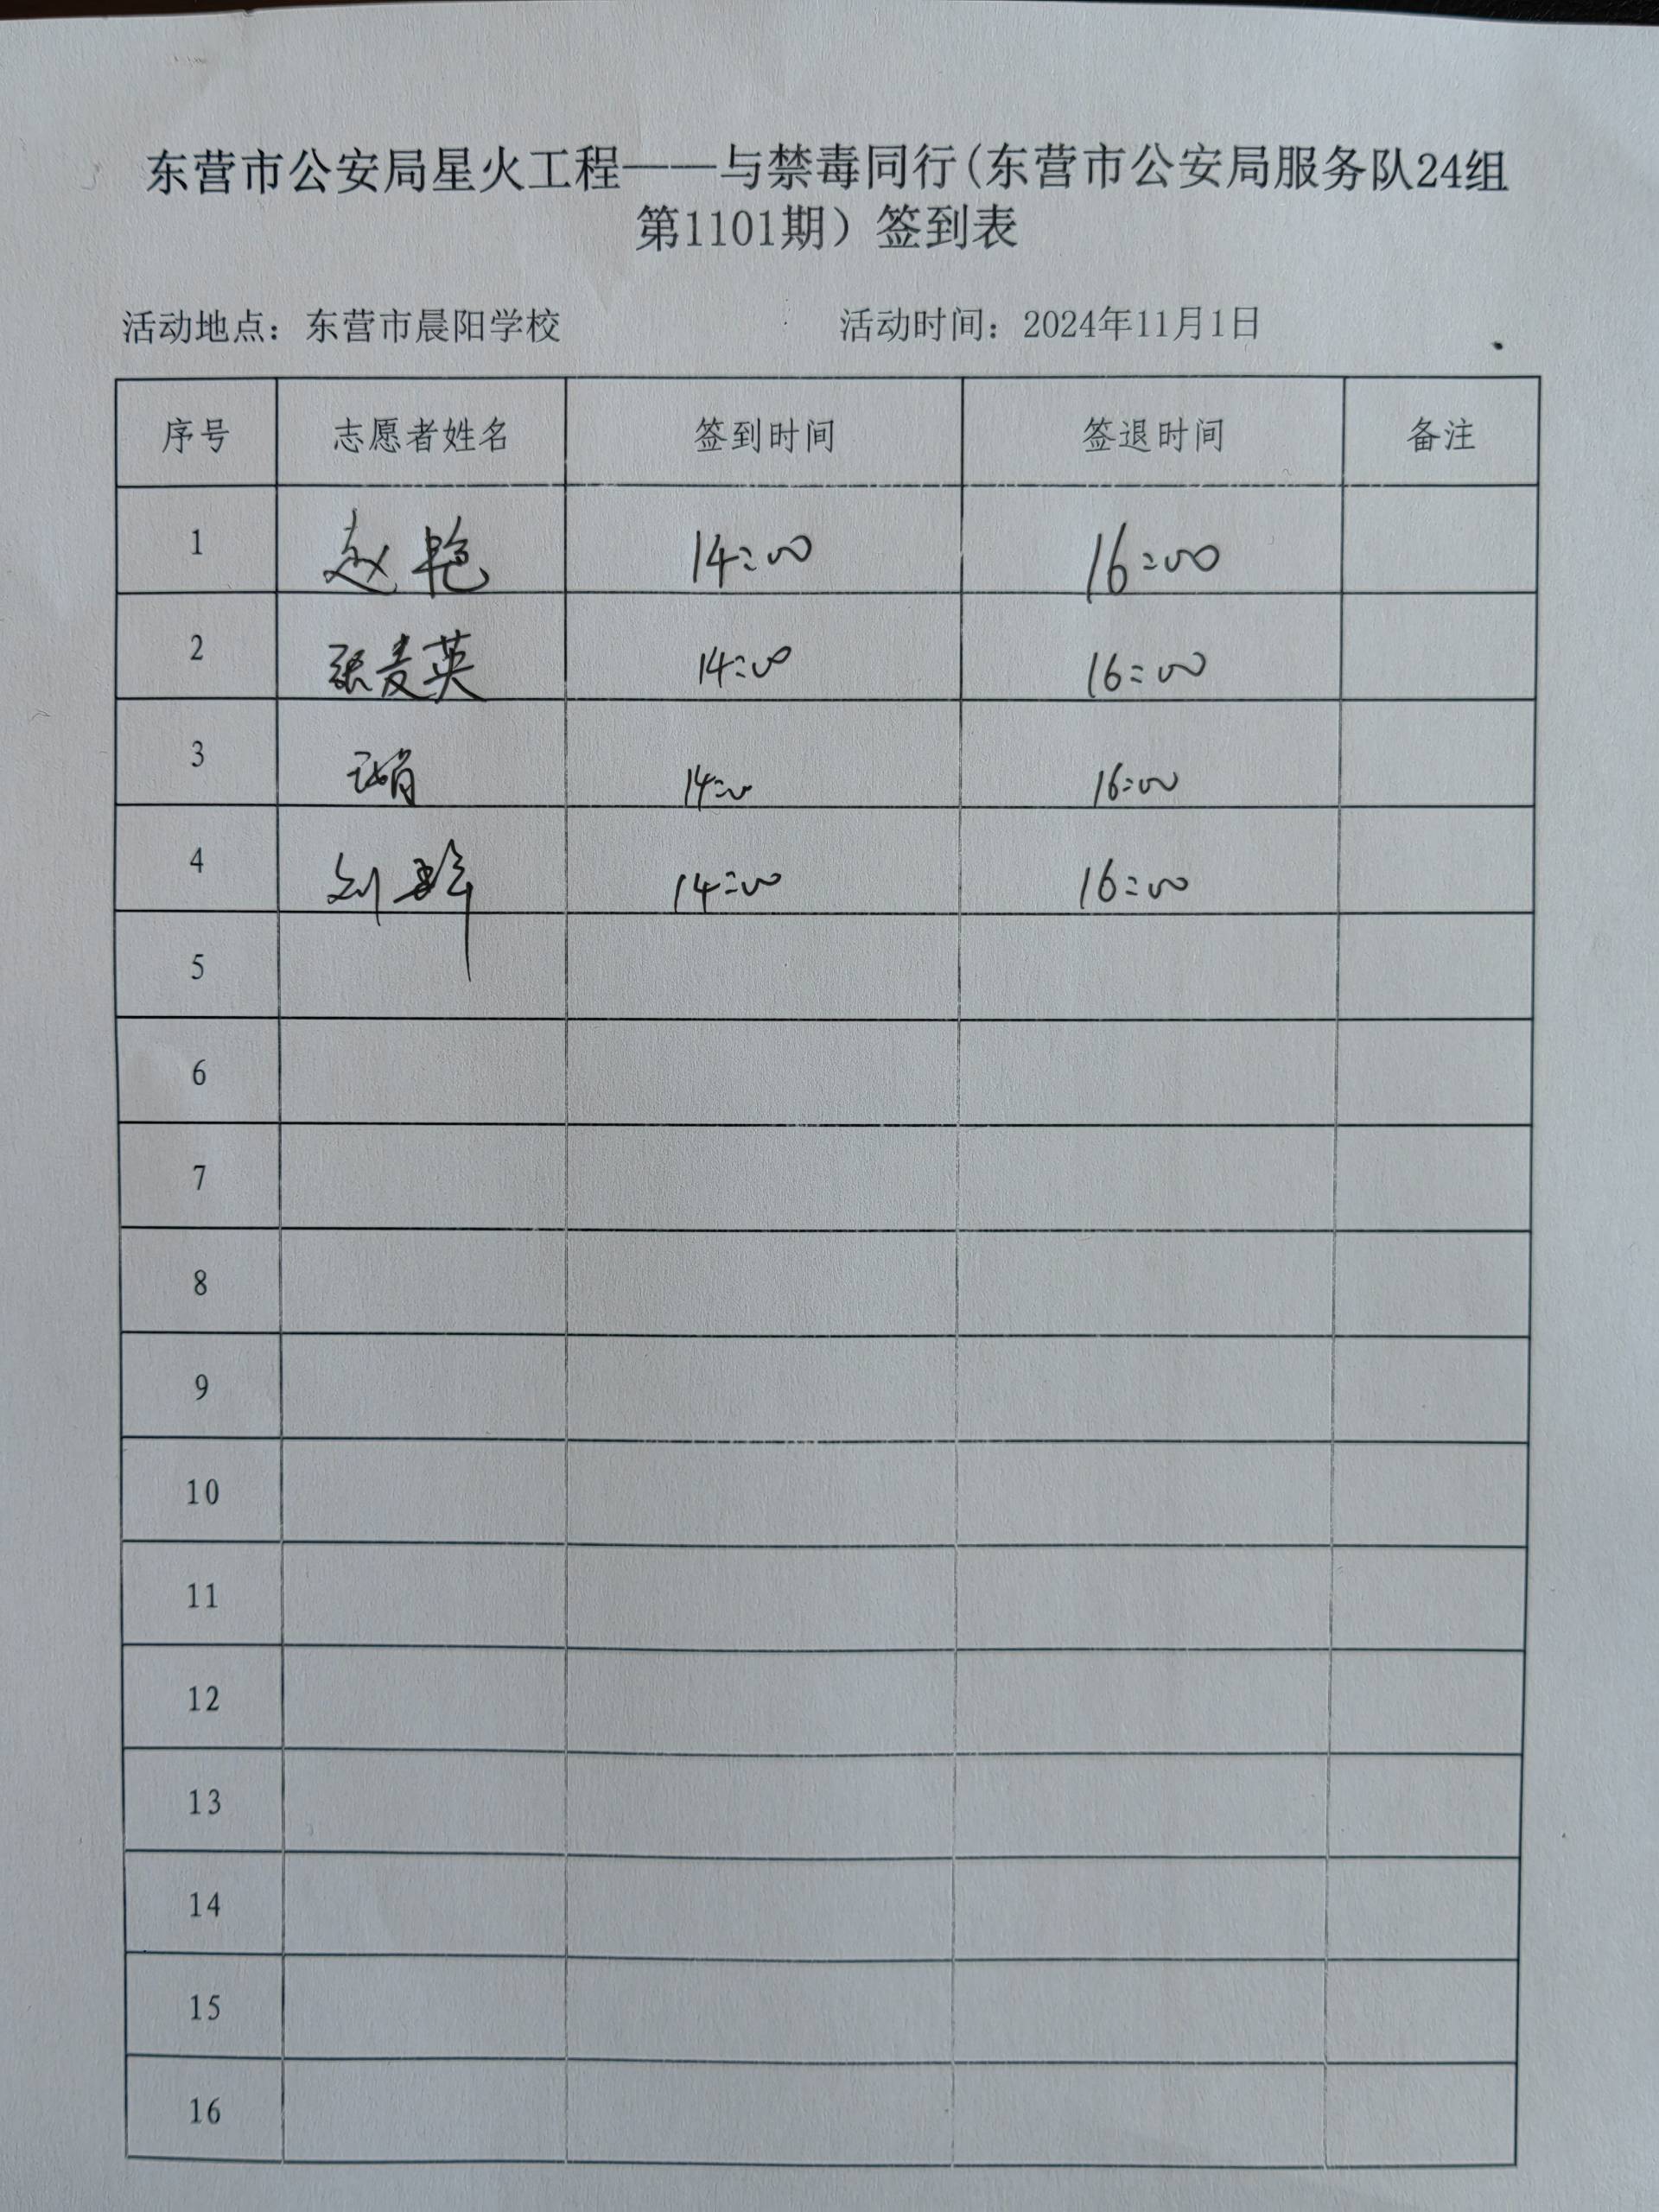 东营市公安局星火工程——与禁毒同行(东营市公安局服务队24组
第1101期）签到表
活动地点：东营市晨阳学校 活动时间：2024年11月1日
序号 志愿者姓名 签到时间 签退时间 备注
1 赵艳 14:00 16:00
2 张麦英 14:00 16:00
3 14:00 16:00
4 刘 14:00 16:00
5
6
7
8
9
10
11
12
13
14
15
16